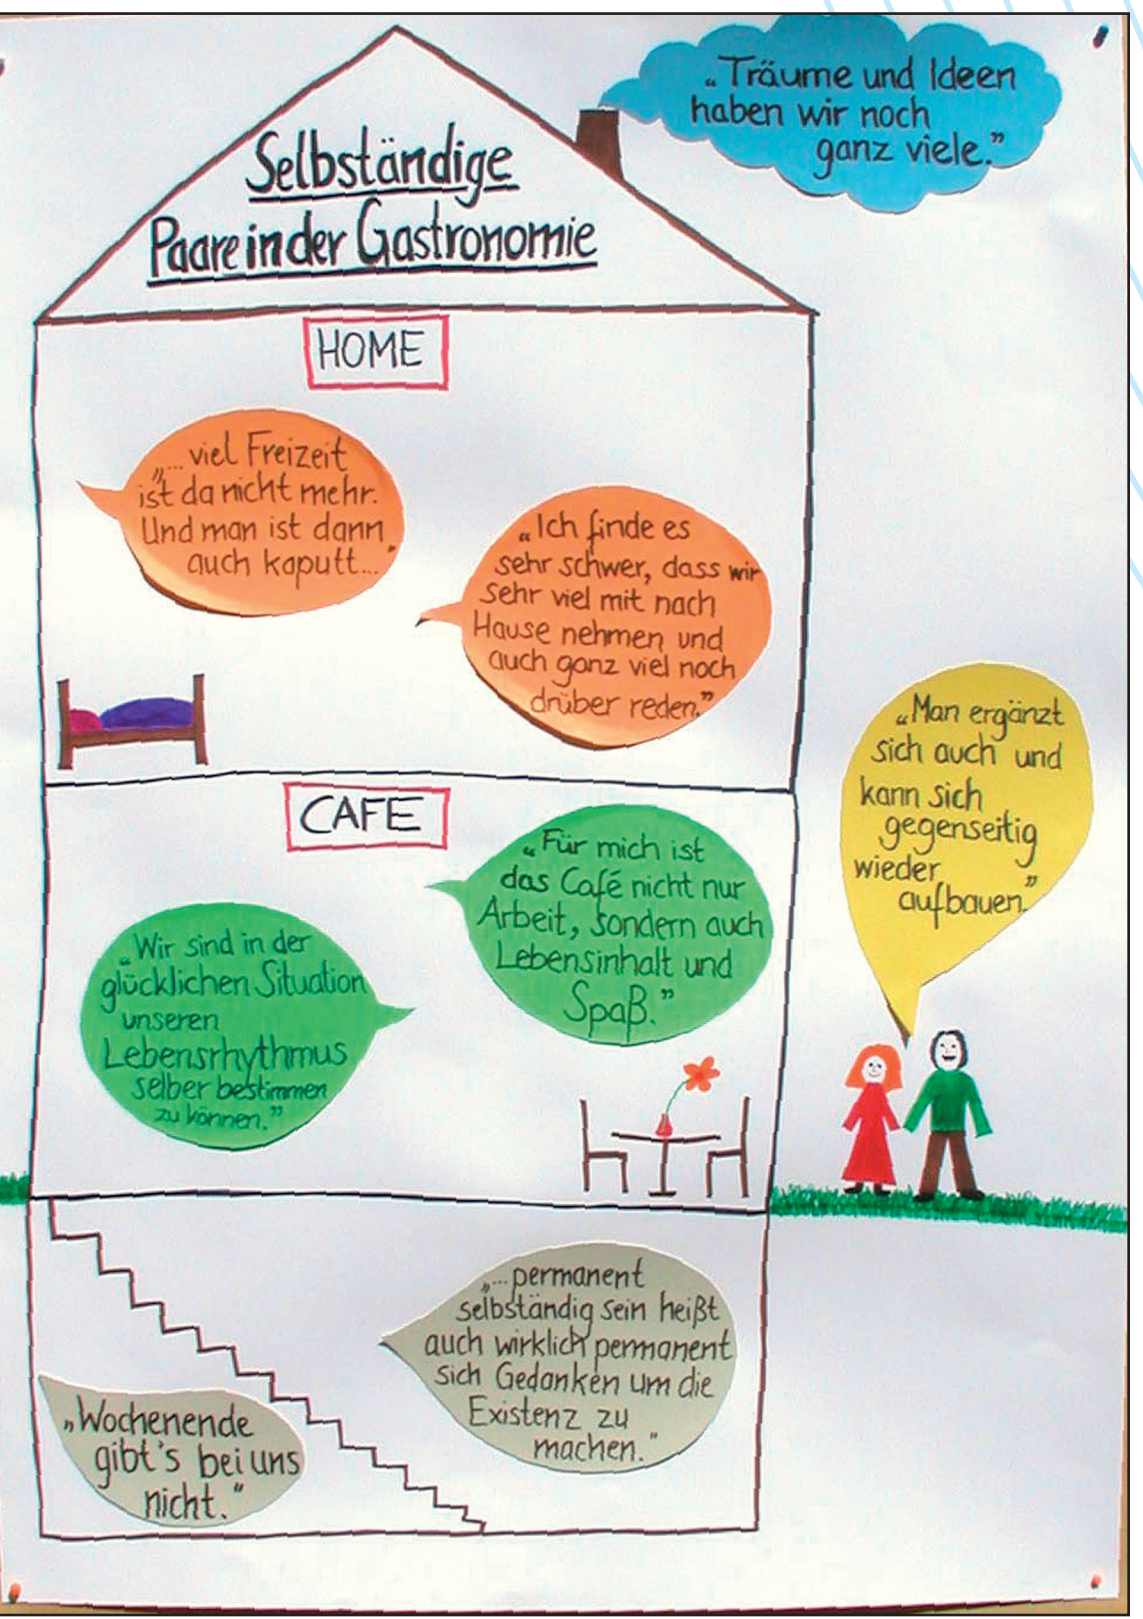 Selbständige
Paare in der Gastronomie
„Träume und Ideen
haben wir noch
ganz viele.”
HOME
„... viel Freizeit
ist da nicht mehr.
Und man ist dann
auch kaputt..."
„Ich finde es
sehr schwer, dass wir
sehr viel mit nach
Hause nehmen und
auch ganz viel noch
drüber reden.”
„Man ergänzt
sich auch und
kann sich
gegenseitig
wieder
aufbauen.”
CAFE
„Für mich ist
das Café nicht nur
Arbeit, sondern auch
Lebensinhalt und
Spaß.”
„Wir sind in der
glücklichen Situation
unseren
Lebensrhythmus
selber bestimmen
zu können.”
„...permanent
selbständig sein heißt
auch wirklich permanent
sich Gedanken um die
Existenz zu
machen."
„Wochenende
gibt's bei uns
nicht."